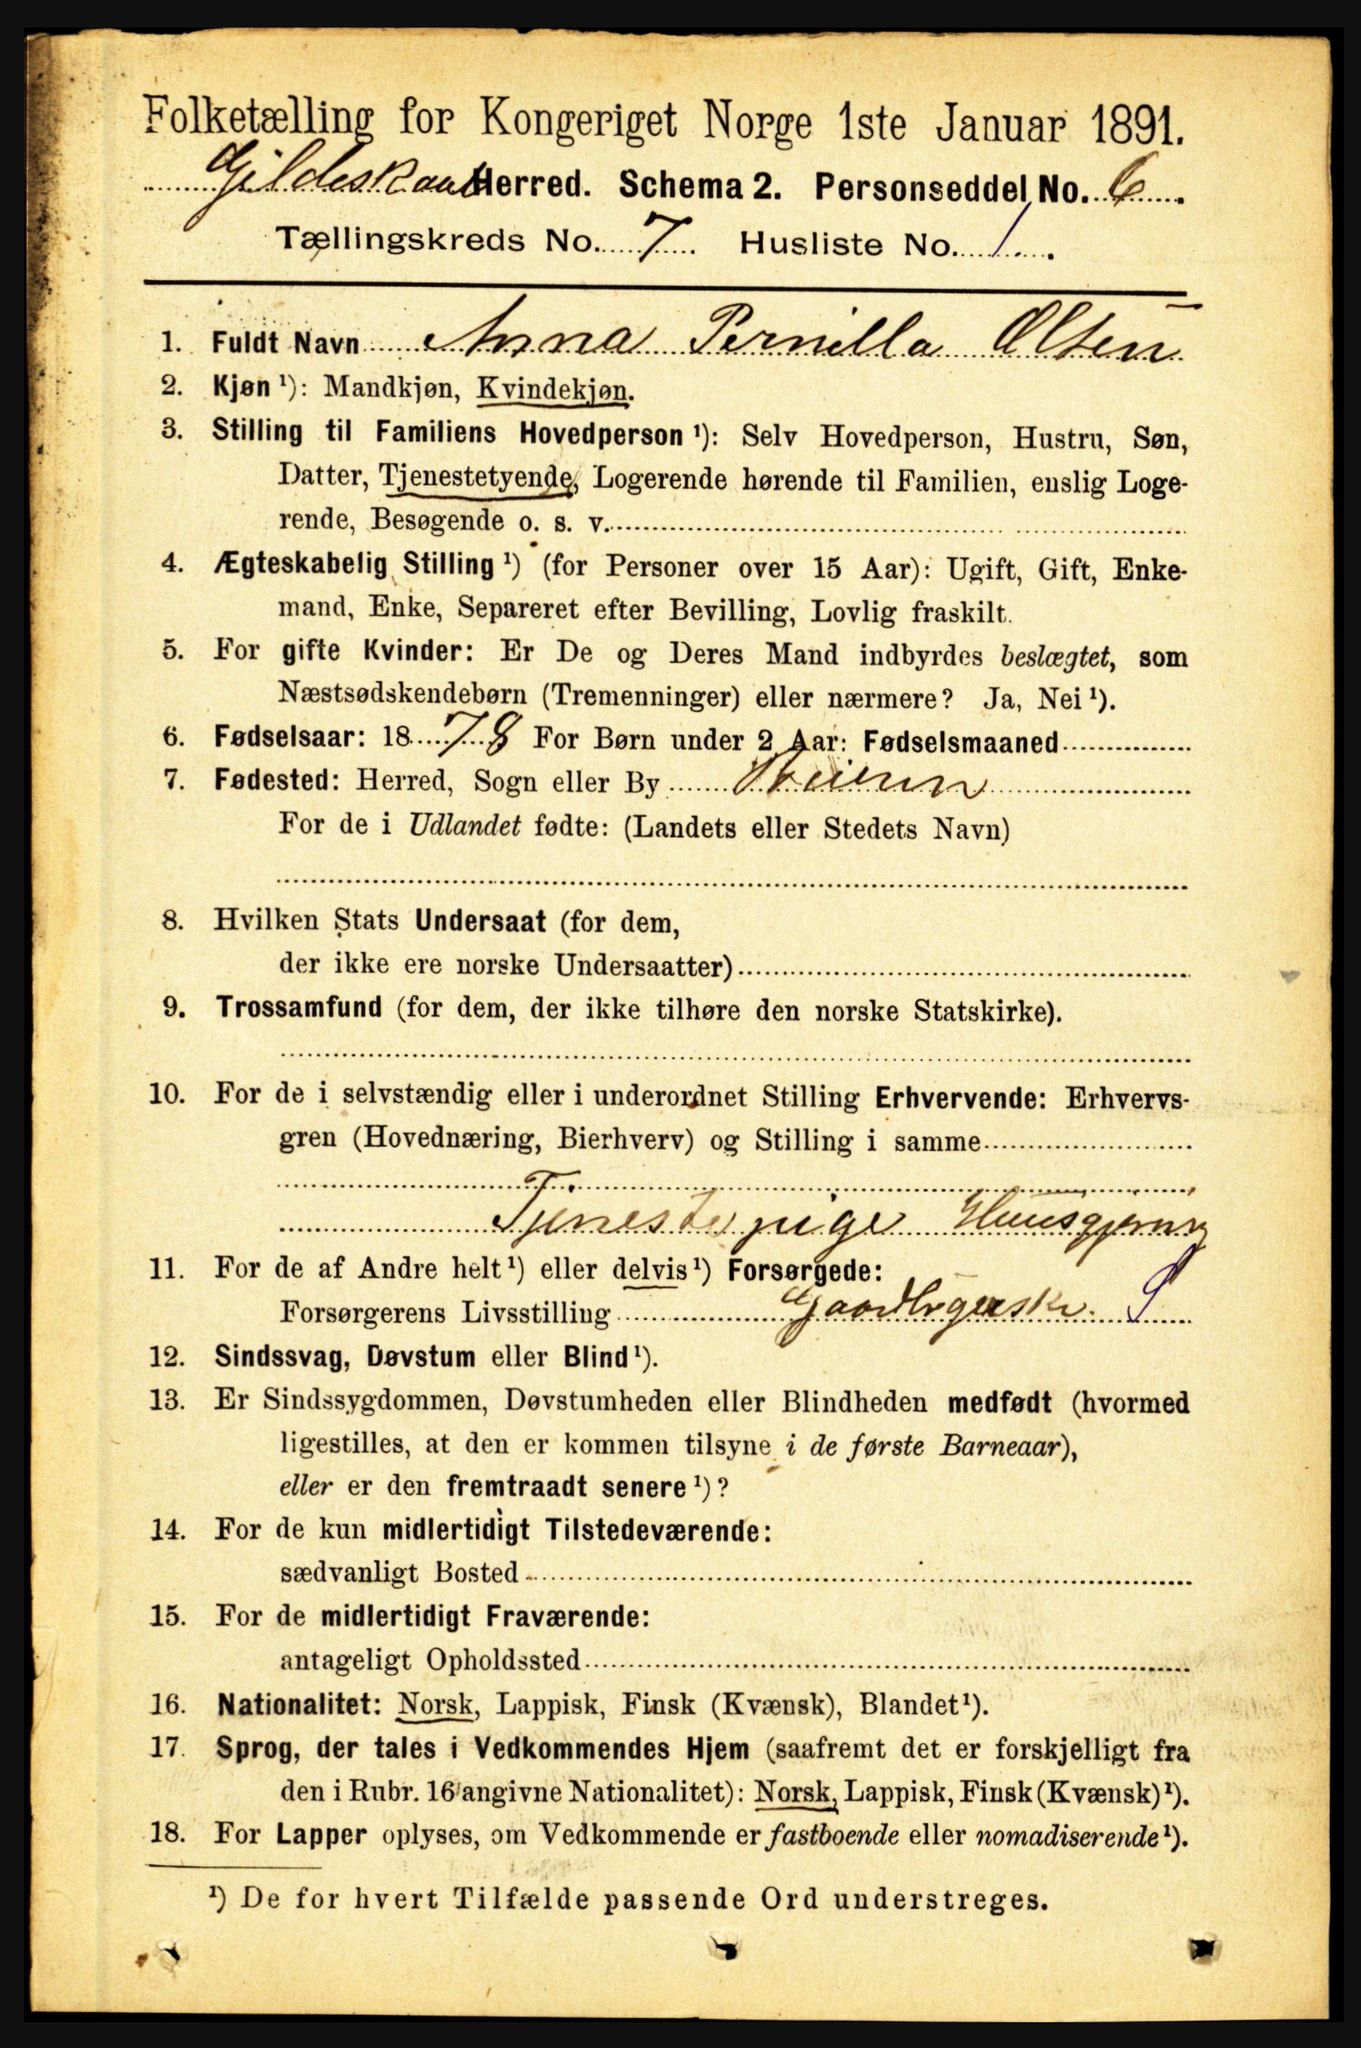 Folketælling for Kongeriget Norge 1ste Januar 1891.
Gildeskaal Herred. Schema 2. Personseddel No. 6.
Tællingskreds No. 7 Husliste No. 1.
1. Fuldt Navn Anna Pernilla Olsen
2. Kjøn ¹): Mandkjøn, Kvindekjøn.
3. Stilling til Familiens Hovedperson ¹): Selv Hovedperson, Hustru, Søn,
Datter, Tjenestetyende, Logerende hørende til Familien, enslig Loge-
rende, Besøgende o. s. v.
4. Ægteskabelig Stilling ¹) (for Personer over 15 Aar): Ugift, Gift, Enke-
mand, Enke, Separeret efter Bevilling, Lovlig fraskilt.
5. For gifte Kvinder: Er De og Deres Mand indbyrdes beslægtet, som
Næstsødskendebørn (Tremenninger) eller nærmere? Ja, Nei ¹).
6. Fødselsaar: 1878 For Børn under 2 Aar: Fødselsmaaned
7. Fødested: Herred, Sogn eller By Beiern
For de i Udlandet fødte: (Landets eller Stedets Navn)
8. Hvilken Stats Undersaat (for dem,
der ikke ere norske Undersaatter)
9. Trossamfund (for dem, der ikke tilhøre den norske Statskirke).
10. For de i selvstændig eller i underordnet Stilling Erhvervende: Erhvervs-
gren (Hovednæring, Bierhverv) og Stilling i samme
Tjenestepige Huusgjerning
11. For de af Andre helt ¹) eller delvis ¹) Forsørgede:
Forsørgerens Livsstilling Gaardbrugerske S
12. Sindssvag, Døvstum eller Blind ¹).
13. Er Sindssygdommen, Døvstumheden eller Blindheden medfødt (hvormed
ligestilles, at den er kommen tilsyne i de første Barneaar),
eller er den fremtraadt senere ¹)?
14. For de kun midlertidigt Tilstedeværende:
sædvanligt Bosted
15. For de midlertidigt Fraværende:
antageligt Opholdssted
16. Nationalitet: Norsk, Lappisk, Finsk (Kvænsk), Blandet ¹).
17. Sprog, der tales i Vedkommendes Hjem (saafremt det er forskjelligt fra
den i Rubr. 16 angivne Nationalitet): Norsk, Lappisk, Finsk (Kvænsk) ¹).
18. For Lapper oplyses, om Vedkommende er fastboende eller nomadiserende ¹).
¹) De for hvert Tilfælde passende Ord understreges.